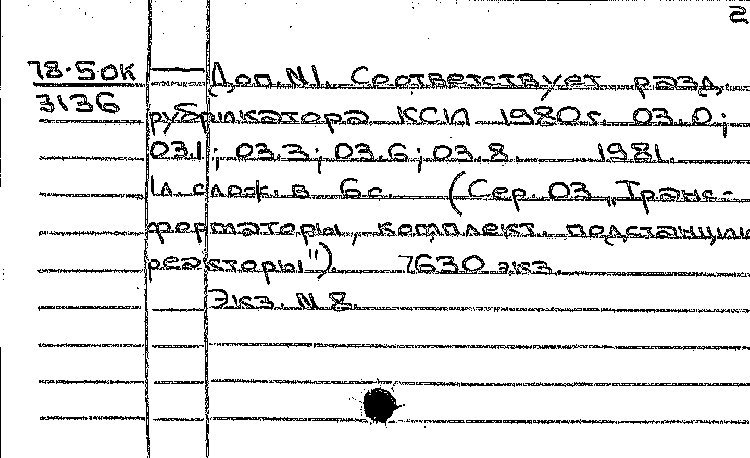 2
78-50К — Доп. N1. Соответствует разд.
3136
рубрикатора КСИ 1980г. 03.0;
03.1; 03.3; 03.6; 03.8. 1981.
1л. слож. в 6с. (Сер. 03 „Транс-
форматоры, комплект. подстанции
реакторы"). 7630 экз.
Экз. N 8.